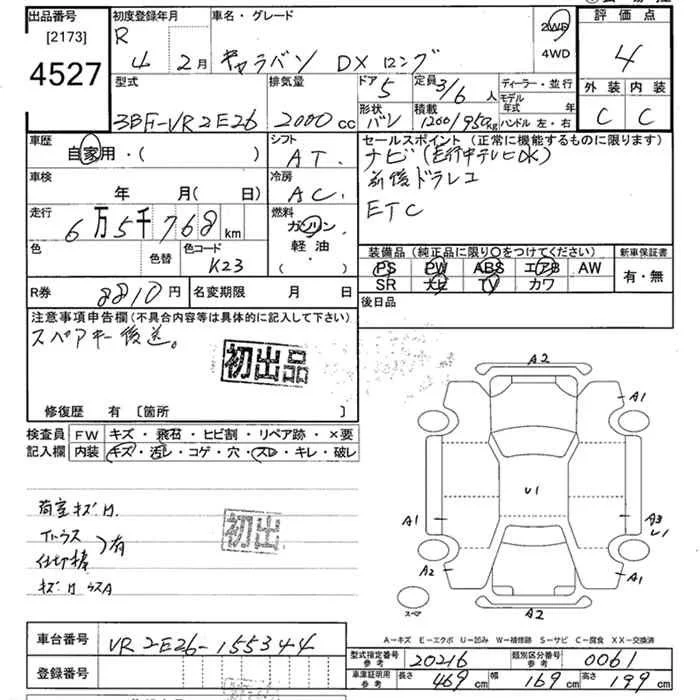 出品番号
[2173]
4527
初度登録年月
R 4 2月
車名・グレード
キャラバン DX ロング
2WD
4WD
評価点
4
外装 内装
C C
型式
3BF-VR2E26
排気量
2000 cc
ドア
5
定員
3/6 人
形状
バン
積載
1200/950 kg
ディーラー・並行
モデル年式 年
ハンドル 左・右
車歴
自家用・( )
シフト
AT.
車検
年 月( 日)
冷房
AC.
走行
6万5千768 km
燃料
ガソリン
軽油
・( )
色
色替
色コード
K23
セールスポイント (正常に機能するものに限ります)
ナビ(走行中テレビOK)
前後ドラレコ
ETC
装備品 (純正品に限り○をつけてください)
PS PW ABS エアB AW
SR ナビ TV カワ
新車保証書
有・無
後日品
R券
8810円
名変期限 月 日
注意事項申告欄 (不具合内容等は具体的に記入して下さい)
スペアキー後送。
初出品
修復歴 有 [箇所 ]
検査員記入欄
FW キズ・飛石・ヒビ割・リペア跡・×要
内装 キズ・汚レ・コゲ・穴・スレ・キレ・破レ
初出
有
A2
A1
A1
U1
A1
A3
A2
A1
A2
スペア
A-キズ E-エクボ U-凹み W-補修跡 S-サビ C-腐食 XX-交換済
車台番号
VR2E26-155344
登録番号
型式指定番号
参考
20216
類別区分番号
参考
0061
車庫証明用
参考
長さ 469 cm
幅 169 cm
高さ 199 cm